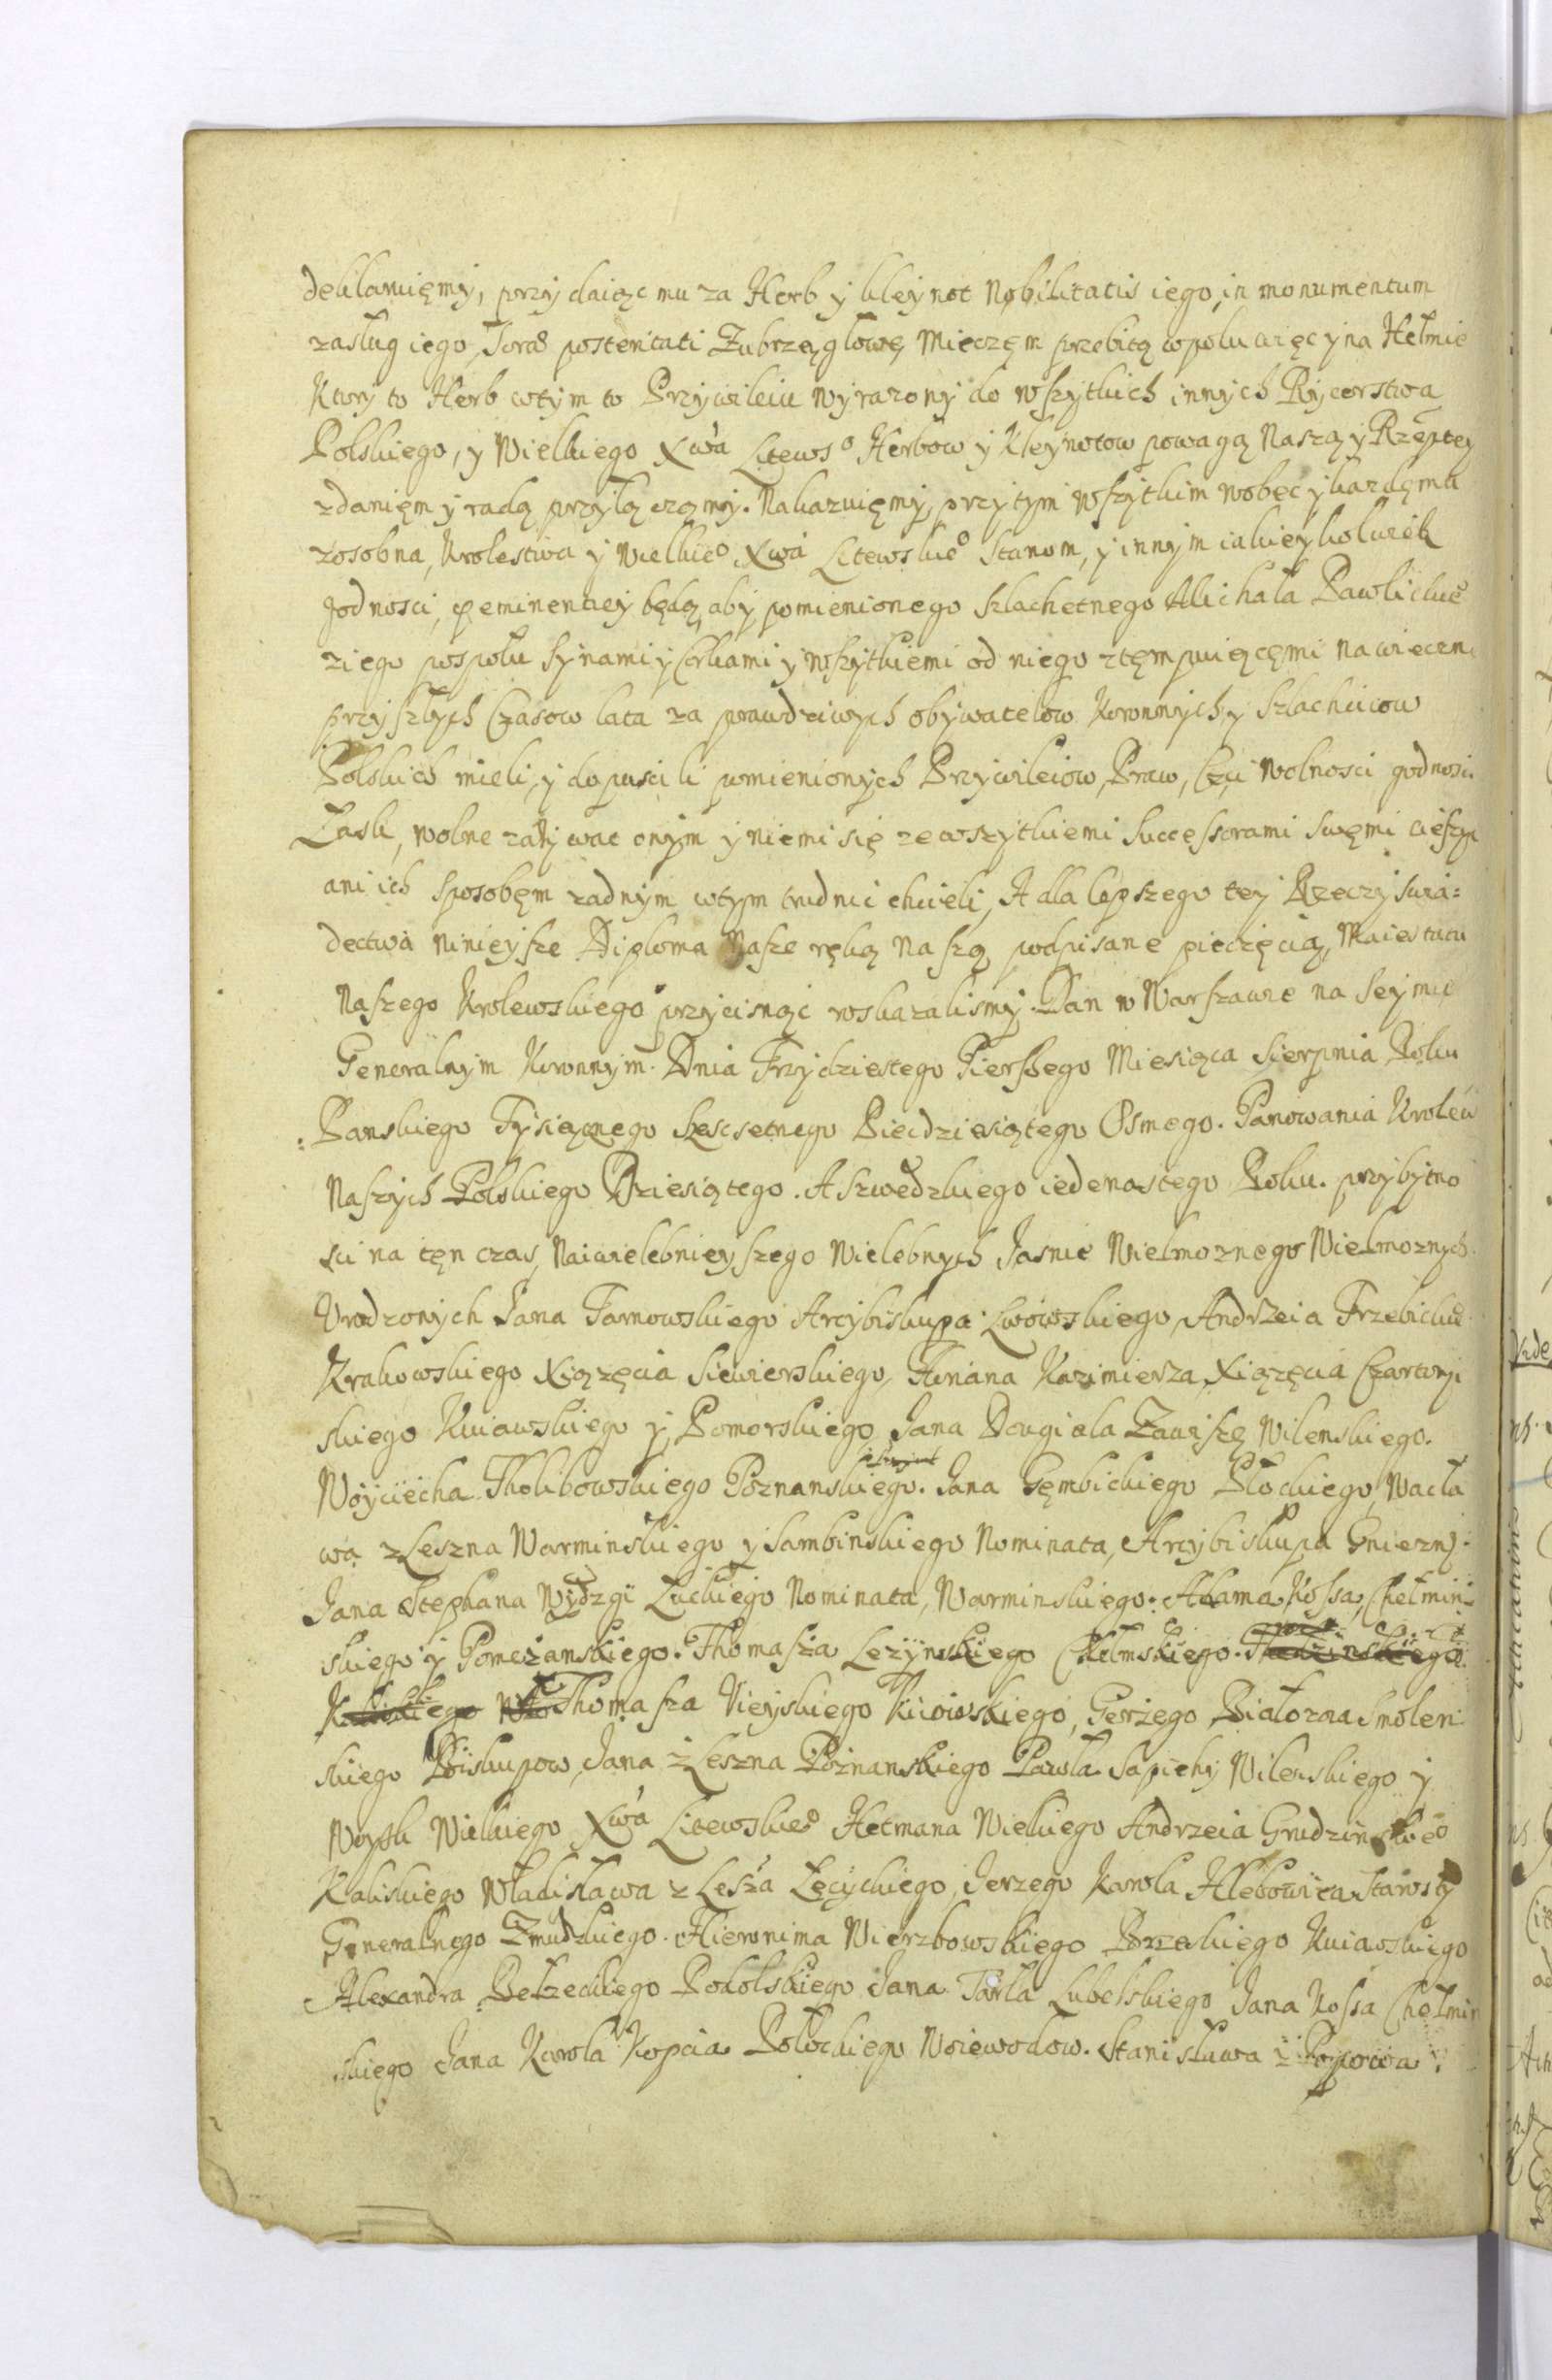 deklaruięmy, przydaiąc mu za Herb y kleynot Nobilitatis iego, in monumentum
zasług iego, Seras posteritati Zubrzą głowę Mieczęm przebitą wpolu więcy na Hełmie
Ktory to Herb wtym to Przywileiu wyrazony do wszytkich innych Rycerstwa
Polskiego, y Wielkiego Xwa Litews⁰ Herbow y Kleynotow powagą Naszą y Rzeptey
zdanięm y radą przyłączamy. Nakazuięmy, przytym wszytkim wobec y kazdęmu
zosobna, Krolestwa y Wielkie⁰ Xwa Litewskie⁰ Stanom, y innym iakieykolwiek
godnosci, peminentiey będą, aby pomienionego szlachetnego Michała Pawlickie⁰
ziego pospołu Synami y Corkami y wszytkiemi od niego ztęmpuiącęmi na wieczne
przyszłych Czasow lata za prawdziwych obywatelow Koronnych y Szlachcicow
Polskich mieli, y dopuscili pomienionych Przywileiow, Praw, Czci Wolnosci godnosci
Łask, wolne zazywac onym y niemi się zewszytkiemi Successorami swęmi cieszyc
ani ich sposobęm zadnym wtym trudnic chcieli, A dla lepszego tey Rzeczy swia=
dectwa Ninieysze Diploma Nasze ręką Naszą podpisane pieczęcią, Maiestatu
Naszego Krolewskiego przycisnąc roskazalismy. Dan w Warszawie na Seymie
Generalnym Koronnym. Dnia Trzydziestego Pierszego Miesiąca Sierpnia Roku
Panskiego Tysiącznego szescsetnego Piecdziesiątego Osmego. Panowania Krolew
Naszych Polskiego Dziesiątego. A szwedzkiego iedenastego Roku. przybytno
sci na tęn czas, Naiwielebnieyszego Wielebnych Jasnie Wielmoznego Wielmoznych.
Urodzonych Jana Tarnowskiego Arcybiskupa Lwowskiego, Andrzeia Trzebickie⁰
Krakowskiego Xiązęcia Siewierskiego, Floriana Kazimierza, Xiązęcia Czartoryi
skiego Kuiawskiego y Pomorskiego, Jana Dowgiala Zawiszę Wilenskiego.
Woyciecha Tholibowskiego Poznanskiego. Jana Gęmbickiego Płockiego, Wacła
wa z Leszna Warminskiego y Sambinskiego Nominata, Arcybiskupa Gniezn:
Jana Stephana Wydzgi Łuckiego Nominata, Warminskiego. Adama Kossa, Chełmin=
skiego y Pomezanskiego. Thomasza Lezynskiego Chełmskiego.
Thomasza Uieyskiego Kiiowskiego, Gerzego Białozora Smolen
skiego Biskupow, Jana z Leszna Poznanskiego Pawła Sapiehy Wilenskiego y
Woysk Wielkiego Xwa Litewskie⁰ Hetmana Wielkiego Andrzeia Grudzinskie⁰
Kaliskiego Władisława z Leszna Łęcyckiego, Jerzego Karola Hlebowica Starosty
Generalnego Zmudzkiego. Hieronima Wierzbowskiego Brzeskiego Kuiawskiego
Alexandra Bełzeckiego Podolskiego Jana Tarła Lubelskiego Jana Kossa Chełmin
skiego Jana Karola Kopcia Połockiego Woiewodow. Stanisława z Popowa